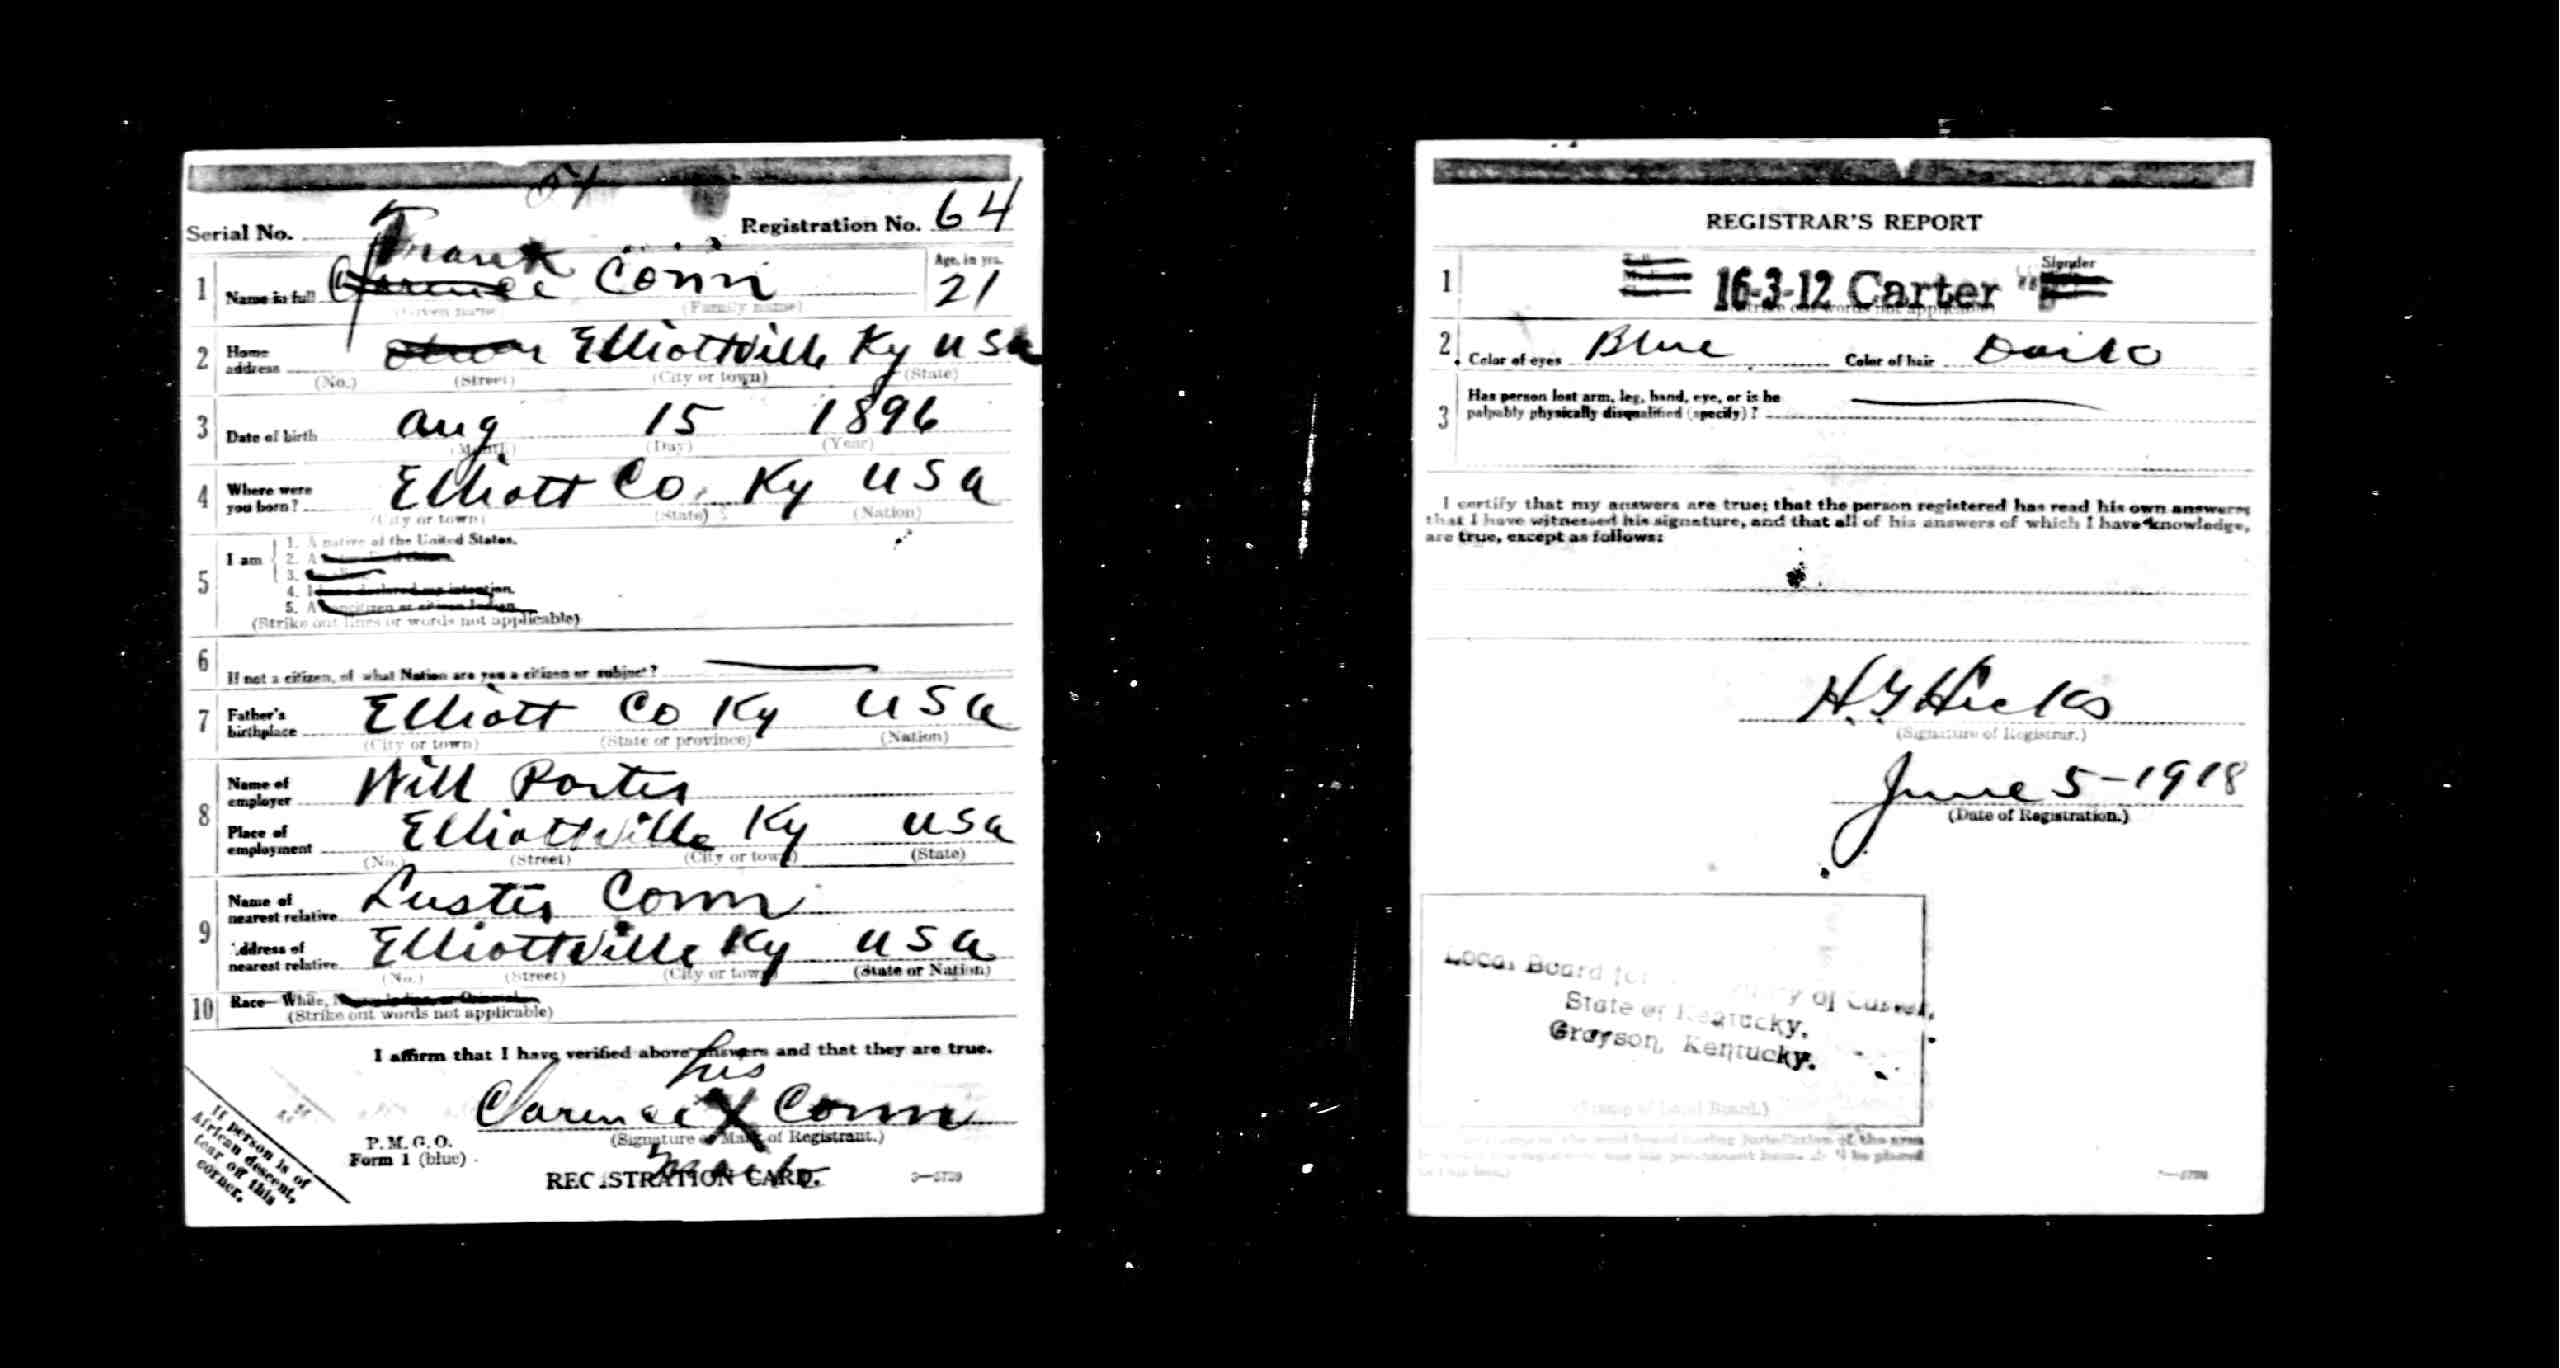 54
Serial No. Registration No. 64
Frank
1 Name in full Clarence Conn Age, in yrs. 21
(Given name) (Family name)
2 Home address Elliottville Ky USA
(No.) (Street) (City or town) (State)
3 Date of birth Aug 15 1896
(Month) (Day) (Year)
4 Where were you born? Elliott Co. Ky USA
(City or town) (State) (Nation)
5 I am
1. A native of the United States.
2. A naturalized citizen.
3. An alien.
4. I have declared my intention.
5. A noncitizen or citizen Indian.
(Strike out lines or words not applicable)
6 If not a citizen, of what Nation are you a citizen or subject?
7 Father's birthplace Elliott Co Ky USA
(City or town) (State or province) (Nation)
8 Name of employer Will Porter
Place of employment Elliottville Ky USA
(No.) (Street) (City or town) (State)
9 Name of nearest relative Luster Conn
Address of nearest relative Elliottville Ky USA
(No.) (Street) (City or town) (State or Nation)
10 Race—White, Negro, Indian, or Oriental
(Strike out words not applicable)
I affirm that I have verified above answers and that they are true.
his
Clarence X Conn
(Signature or Mark of Registrant.)
mark
P. M. G. O.
Form 1 (blue)
REGISTRATION CARD.
3—5739
If person is of
African descent,
tear off this
corner.
REGISTRAR'S REPORT
1 16-3-12 Carter Slender
(Strike out words not applicable)
2 Color of eyes Blue Color of hair Dark
3 Has person lost arm, leg, hand, eye, or is he
palpably physically disqualified (specify)?
I certify that my answers are true; that the person registered has read his own answers;
that I have witnessed his signature, and that all of his answers of which I have knowledge,
are true, except as follows:
H. G Hicks
(Signature of Registrar.)
June 5-1918
(Date of Registration.)
Local Board for of Carter,
State of Kentucky.
Grayson, Kentucky.
(Stamp of Local Board.)